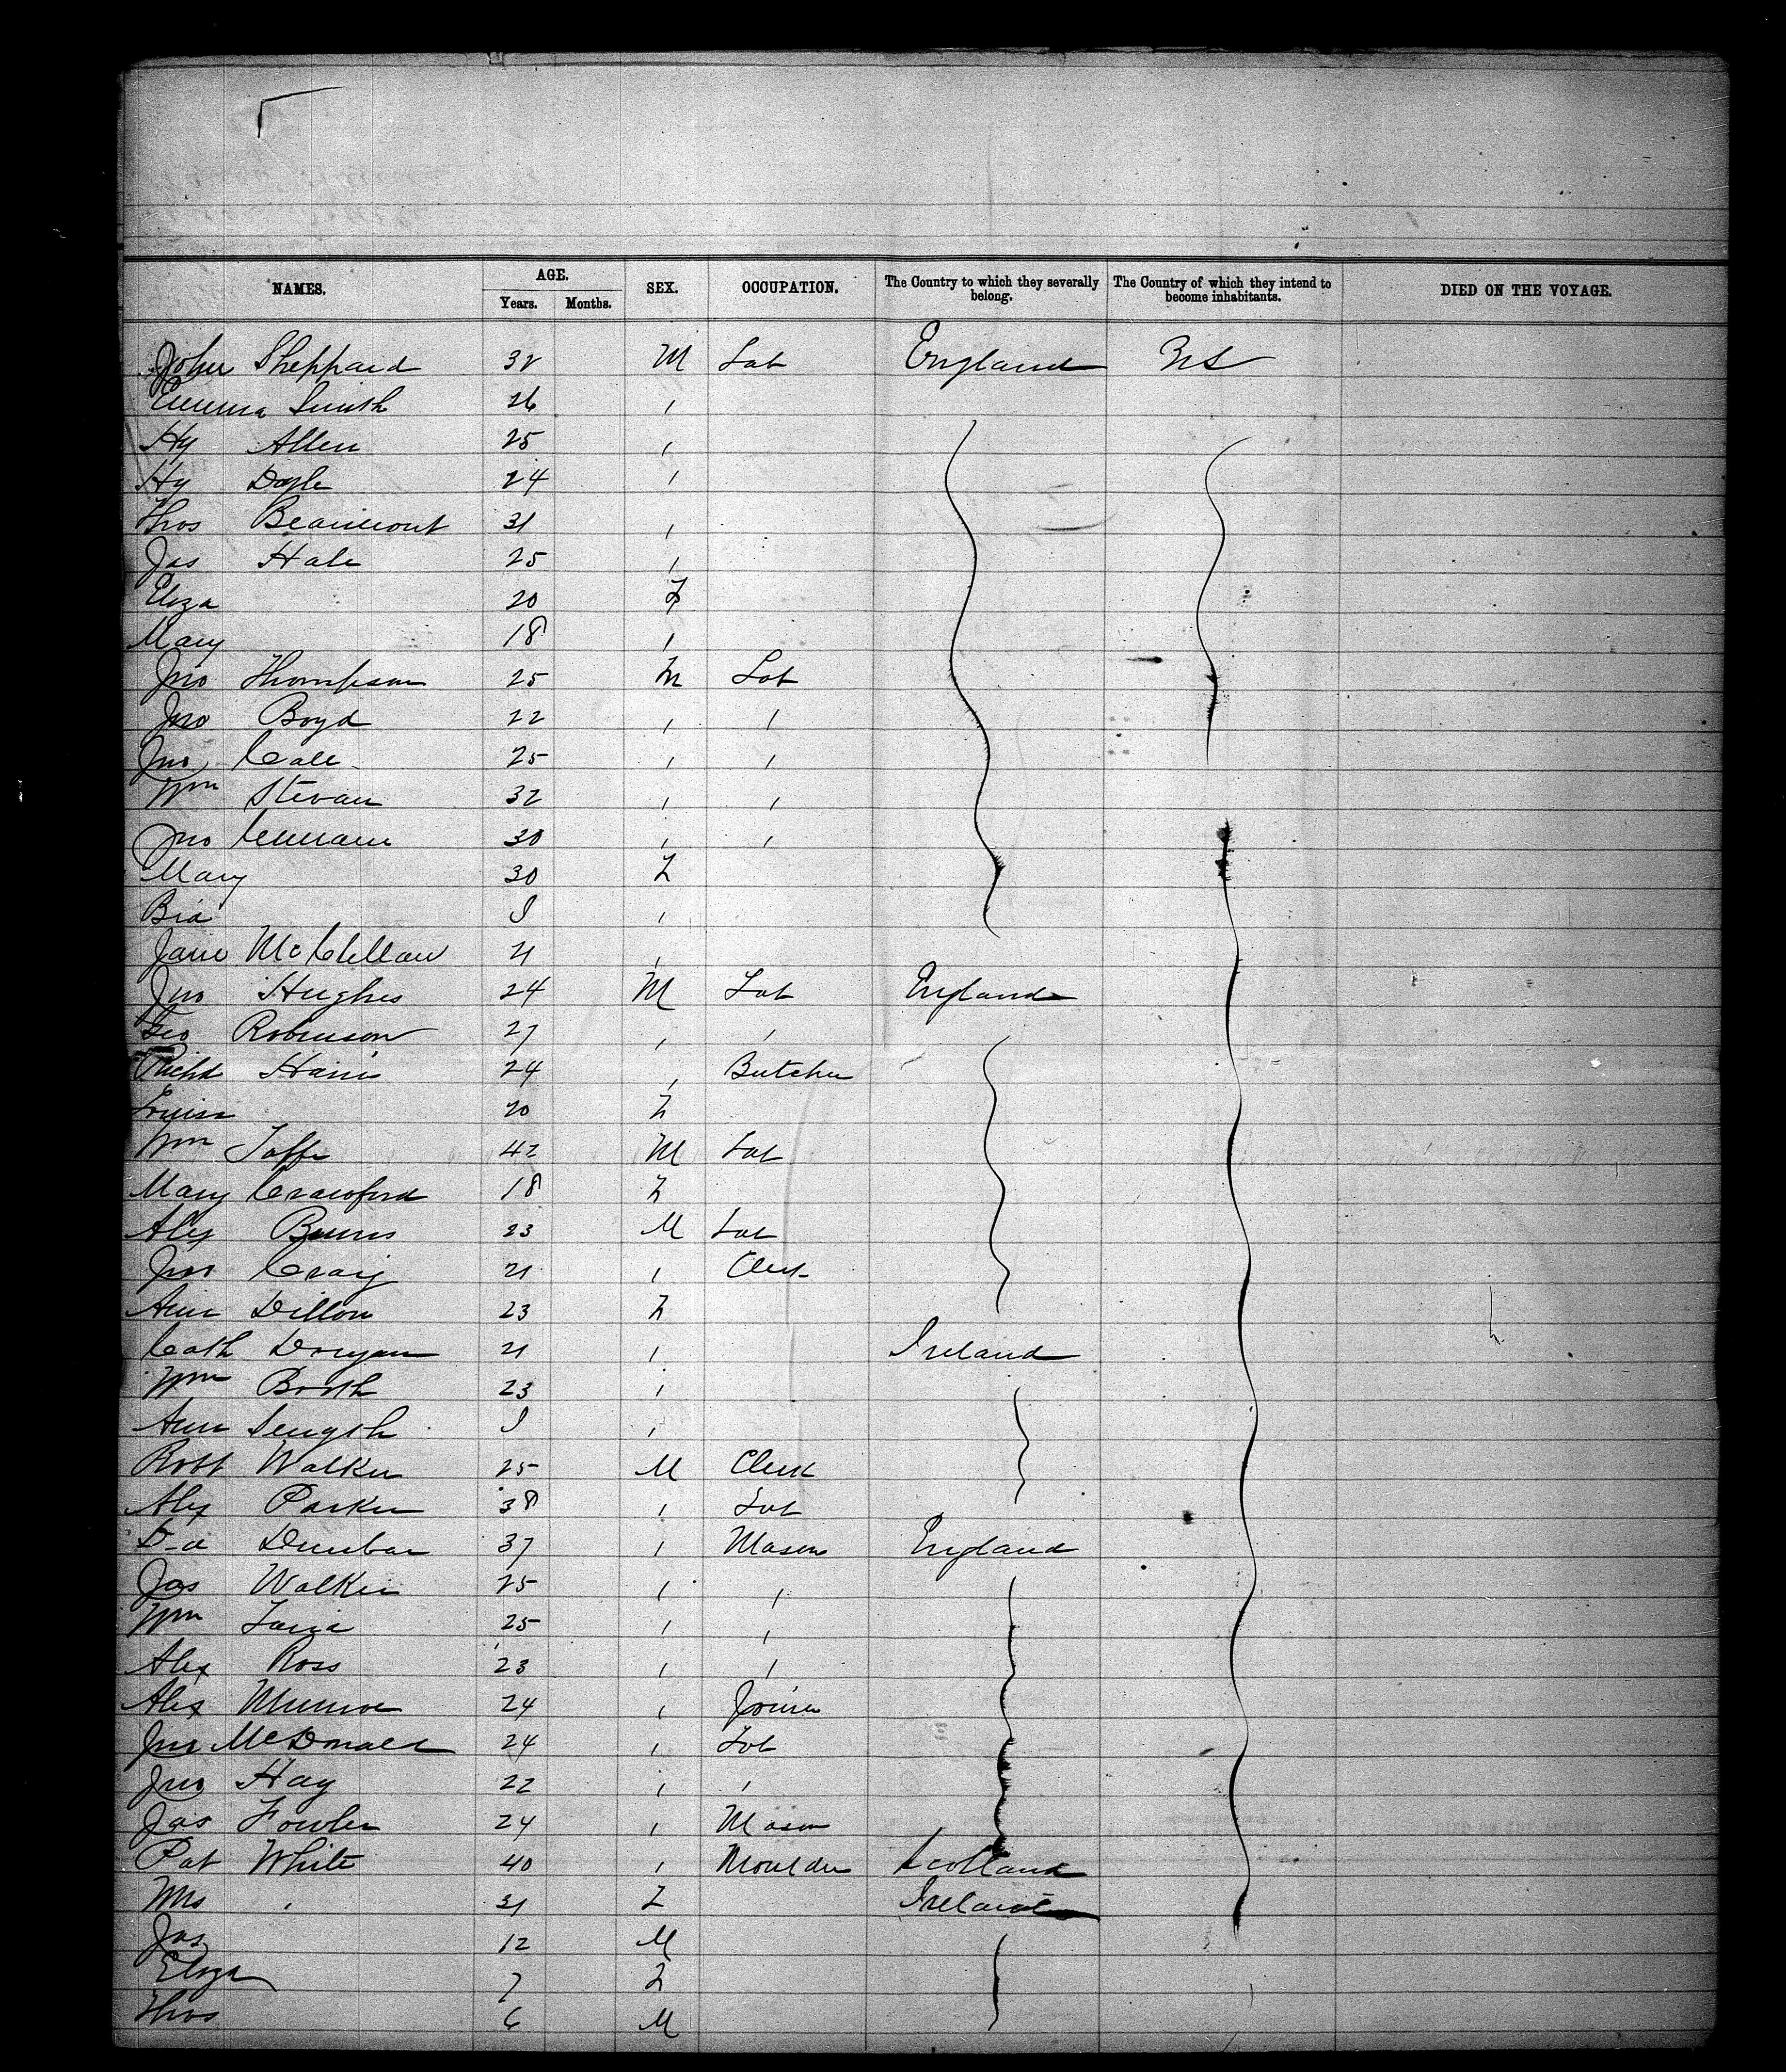 NAMES. AGE. Years. Months. SEX. OCCUPATION. The Country to which they severally belong. The Country of which they intend to become inhabitants. DIED ON THE VOYAGE.
John Sheppard 32 M Lab England
Emma Smith 26 "
Hy Allen 25 "
Hy Doyle 24 "
Thos Beaumont 31 "
Jas Hale 25 "
Eliza 20 F
Mary 18 "
Jno Thompson 25 M Lab
Jno Boyd 22 " "
Jno 25 " "
Wm Stevan 32 " "
Jno 30 " "
Mary 30 F
"
Jane McClellan 21 "
Jno Hughes 24 M Lab England
Geo Robinson 27 " "
Richd Harris 24 " Butcher
Louisa 20 F
Wm 42 M Lab
Mary Crawford 18 F
Alex Burns 23 M Lab
Craig 21 " Clerk
Ann Dillon 23 F
Cath 21 " Ireland
Wm Booth 23 "
Ann "
Robt Walker 25 M Clerk
Alex Parker 38 " Lab
Dunbar 37 " Mason England
Jas Walker 25 " "
Wm 25 " "
Alex Ross 23 " "
Alex Munroe 24 " Joiner
Jno McDonald 24 " Lab
Jno Hay 22 " "
Jas Fowler 24 " Mason
Pat White 40 " Moulder Scotland
Mrs " 31 F Ireland
Jas 12 M
Eliza 7 F
Thos 6 M